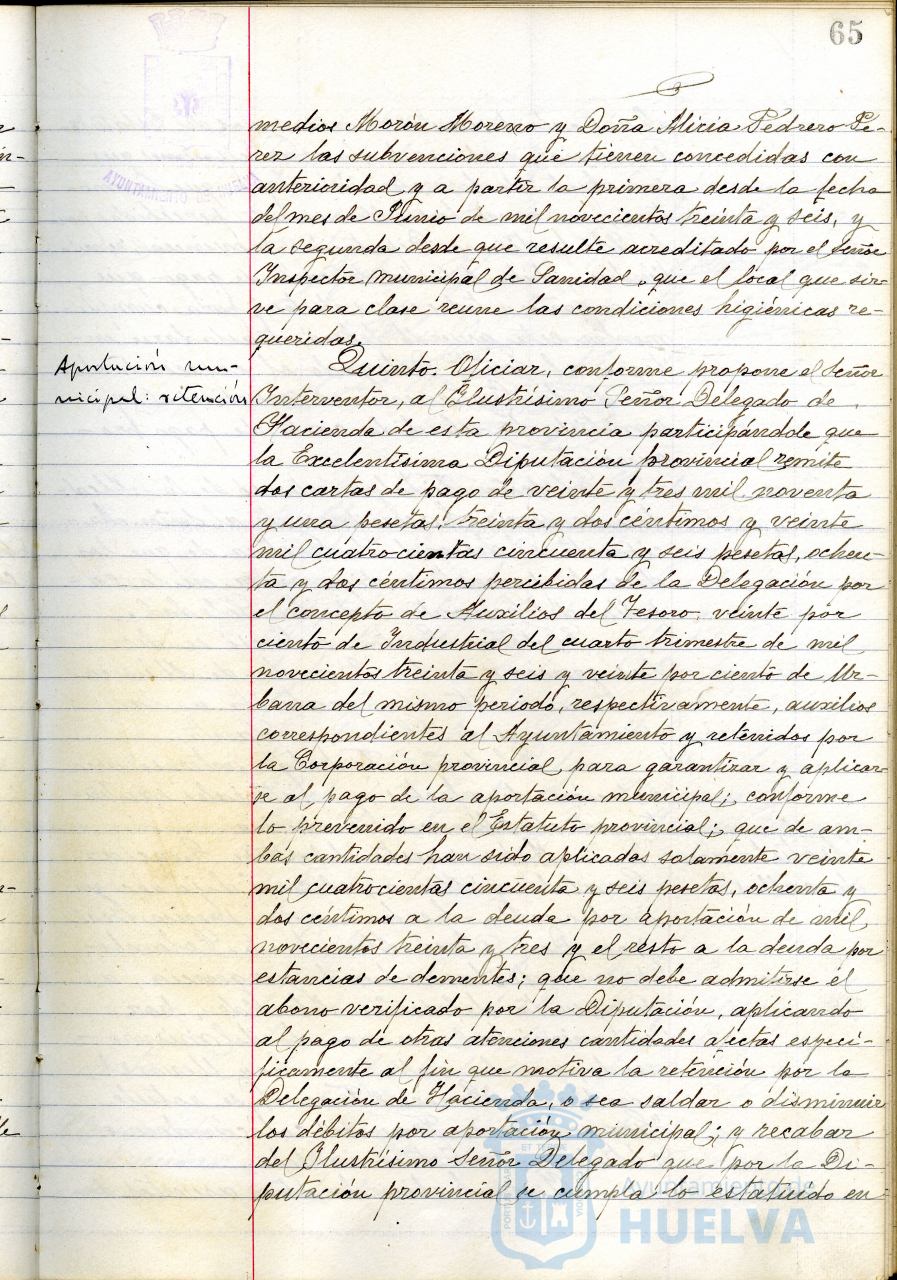 65
medios Morón Moreno y Doña Alicia Pedrero Pe-
rez las subvenciones que tienen concedidas con
anterioridad y a partir la primera desde la fecha
del mes de Junio de mil novecientos treinta y seis, y
la segunda desde que resulte acreditado por el señor
Inspector municipal de Sanidad, que el local que sir-
ve para clase reune las condiciones higiénicas re-
queridas.
Aportación mu-
nicipal: retención
Quinto. Oficiar, conforme propone el señor
Interventor, al Ilustrísimo Señor Delegado de
Hacienda de esta provincia participándole que
la Excelentísima Diputación provincial remite
dos cartas de pago de veinte y tres mil noventa
y una pesetas, treinta y dos céntimos y veinte
mil cuatrocientas cincuenta y seis pesetas, ochen-
ta y dos céntimos percibidas de la Delegación por
el concepto de Auxilios del Tesoro, veinte por
ciento de Industrial del cuarto trimestre de mil
novecientos treinta y seis y veinte por ciento de Ur-
bana del mismo periodo, respectivamente, auxilios
correspondientes al Ayuntamiento y retenidos por
la Corporación provincial para garantizar y aplicar-
se al pago de la aportación municipal; conforme
lo prevenido en el Estatuto provincial; que de am-
bas cantidades han sido aplicadas solamente veinte
mil cuatrocientas cincuenta y seis pesetas, ochenta y
dos céntimos a la deuda por aportación de mil
novecientos treinta y tres y el resto a la deuda por
estancias de dementes; que no debe admitirse el
abono verificado por la Diputación, aplicando
al pago de otras atenciones cantidades afectas especí-
ficamente al fin que motiva la retención por la
Delegación de Hacienda, o sea saldar o disminuir
los débitos por aportación municipal; y recabar
del Ilustrísimo Señor Delegado que por la Di-
putación provincial se cumpla lo estatuido en
Ayuntamiento de
HUELVA